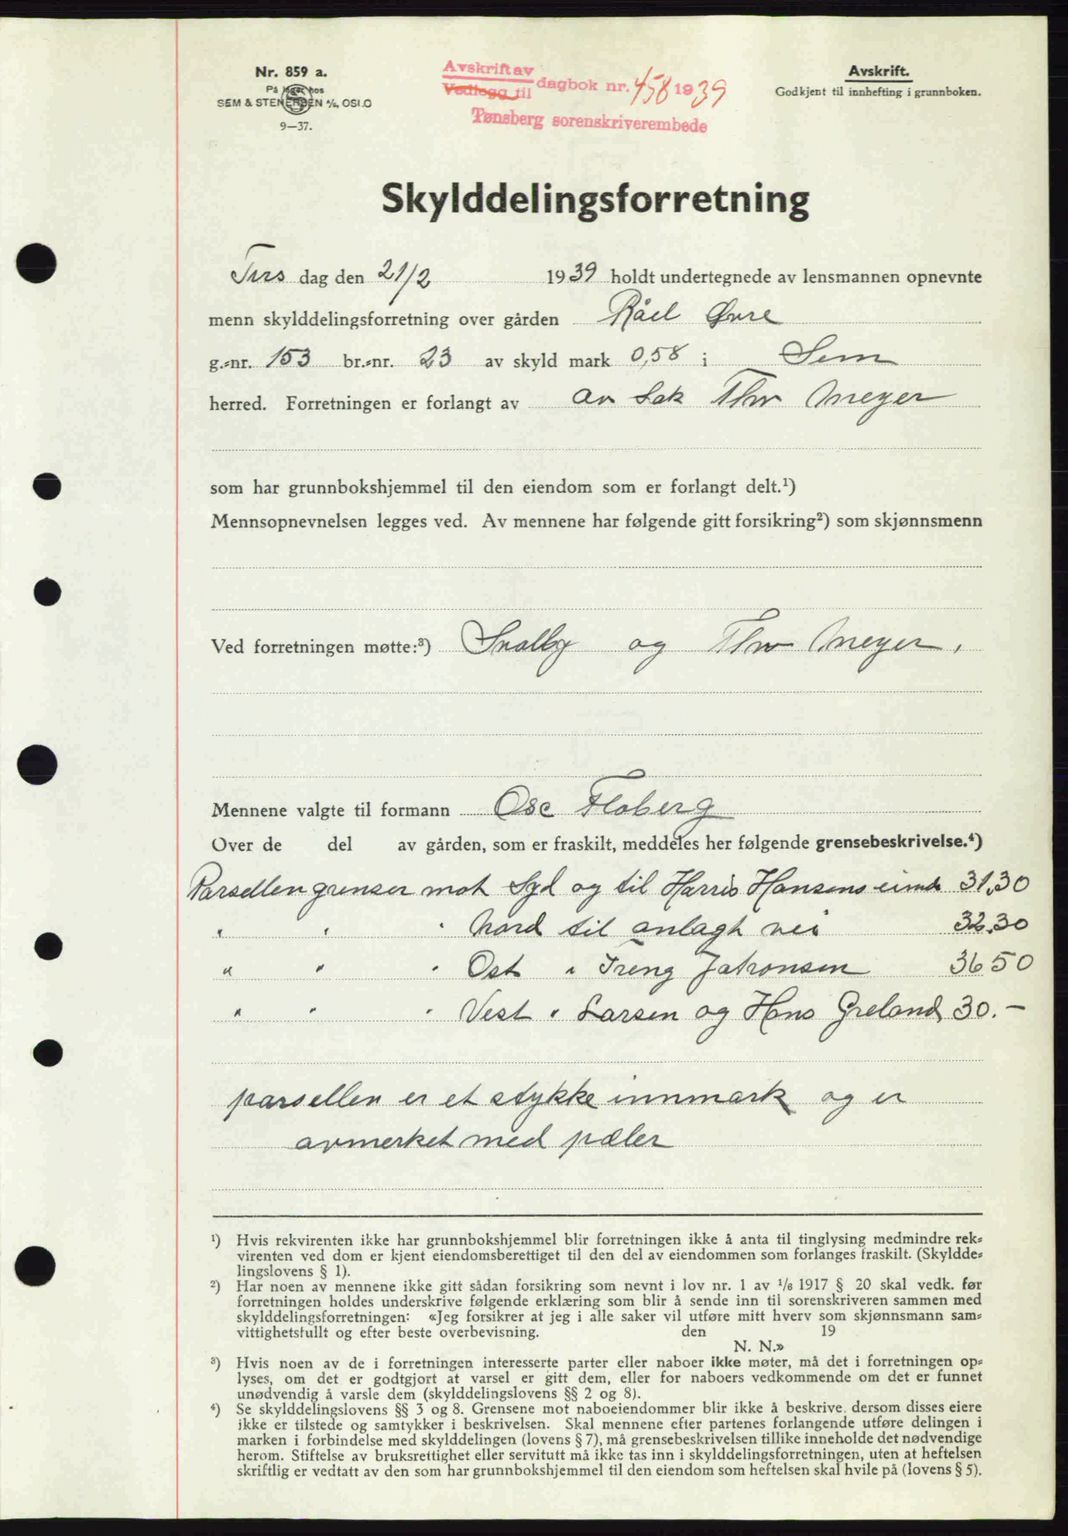 Nr. 859 a.
På lager hos
SEM & STENERSEN A/S, OSLO
9—37.
Avskrift av
Vedlegg til dagbok nr. 458 1939
Tønsberg sorenskriverembede
Avskrift.
Godkjent til innhefting i grunnboken.
Skylddelingsforretning
Tirs dag den 21/2 1939 holdt undertegnede av lensmannen opnevnte
menn skylddelingsforretning over gården Råel Øvre
g.-nr. 153 br.-nr. 23 av skyld mark 0,58 i Sem
herred. Forretningen er forlangt av av Sak Thv Meyer
som har grunnbokshjemmel til den eiendom som er forlangt delt.¹)
Mennsopnevnelsen legges ved. Av mennene har følgende gitt forsikring²) som skjønnsmenn
Ved forretningen møtte:³) og Thv Meyer.
Mennene valgte til formann Osc Floberg
Over de del av gården, som er fraskilt, meddeles her følgende grensebeskrivelse.⁴)
Parsellen grenser mot Syd og til Harris Hansens eiend 31,30
" " " Nord til anlagt vei 32.30
" " " Øst " 36 50
" " " Vest " Larsen og Hans Greland 30.-
parsellen er et stykke innmark og er
avmerket med pæler
¹) Hvis rekvirenten ikke har grunnbokshjemmel blir forretningen ikke å anta til tinglysing medmindre rek-
virenten ved dom er kjent eiendomsberettiget til den del av eiendommen som forlanges fraskilt. (Skyldde-
lingslovens § 1).
²) Har noen av mennene ikke gitt sådan forsikring som nevnt i lov nr. 1 av 1/6 1917 § 20 skal vedk. før
forretningen holdes underskrive følgende erklæring som blir å sende inn til sorenskriveren sammen med
skylddelingsforretningen: «Jeg forsikrer at jeg i alle saker vil utføre mitt hverv som skjønnsmann sam-
vittighetsfullt og efter beste overbevisning. den 19
N. N.»
³) Hvis noen av de i forretningen interesserte parter eller naboer ikke møter, må det i forretningen op-
lyses, om det er godtgjort at varsel er gitt dem, eller for naboers vedkommende om det er funnet
unødvendig å varsle dem (skylddelingslovens §§ 2 og 8).
⁴) Se skylddelingslovens §§ 3 og 8. Grensene mot naboeiendommer blir ikke å beskrive, dersom disses eiere
ikke er tilstede og samtykker i beskrivelsen. Skal mennene efter partenes forlangende utføre delingen i
marken i forbindelse med skylddelingen (lovens § 7), må grensebeskrivelsen tillike inneholde det nødvendige
herom. Stiftelse av bruksrettighet eller servitutt må ikke tas inn i skylddelingsforretningen, uten at heftelsen
skriftlig er vedtatt av den som har grunnbokshjemmel til den eiendom som heftelsen skal hvile på (lovens § 5).